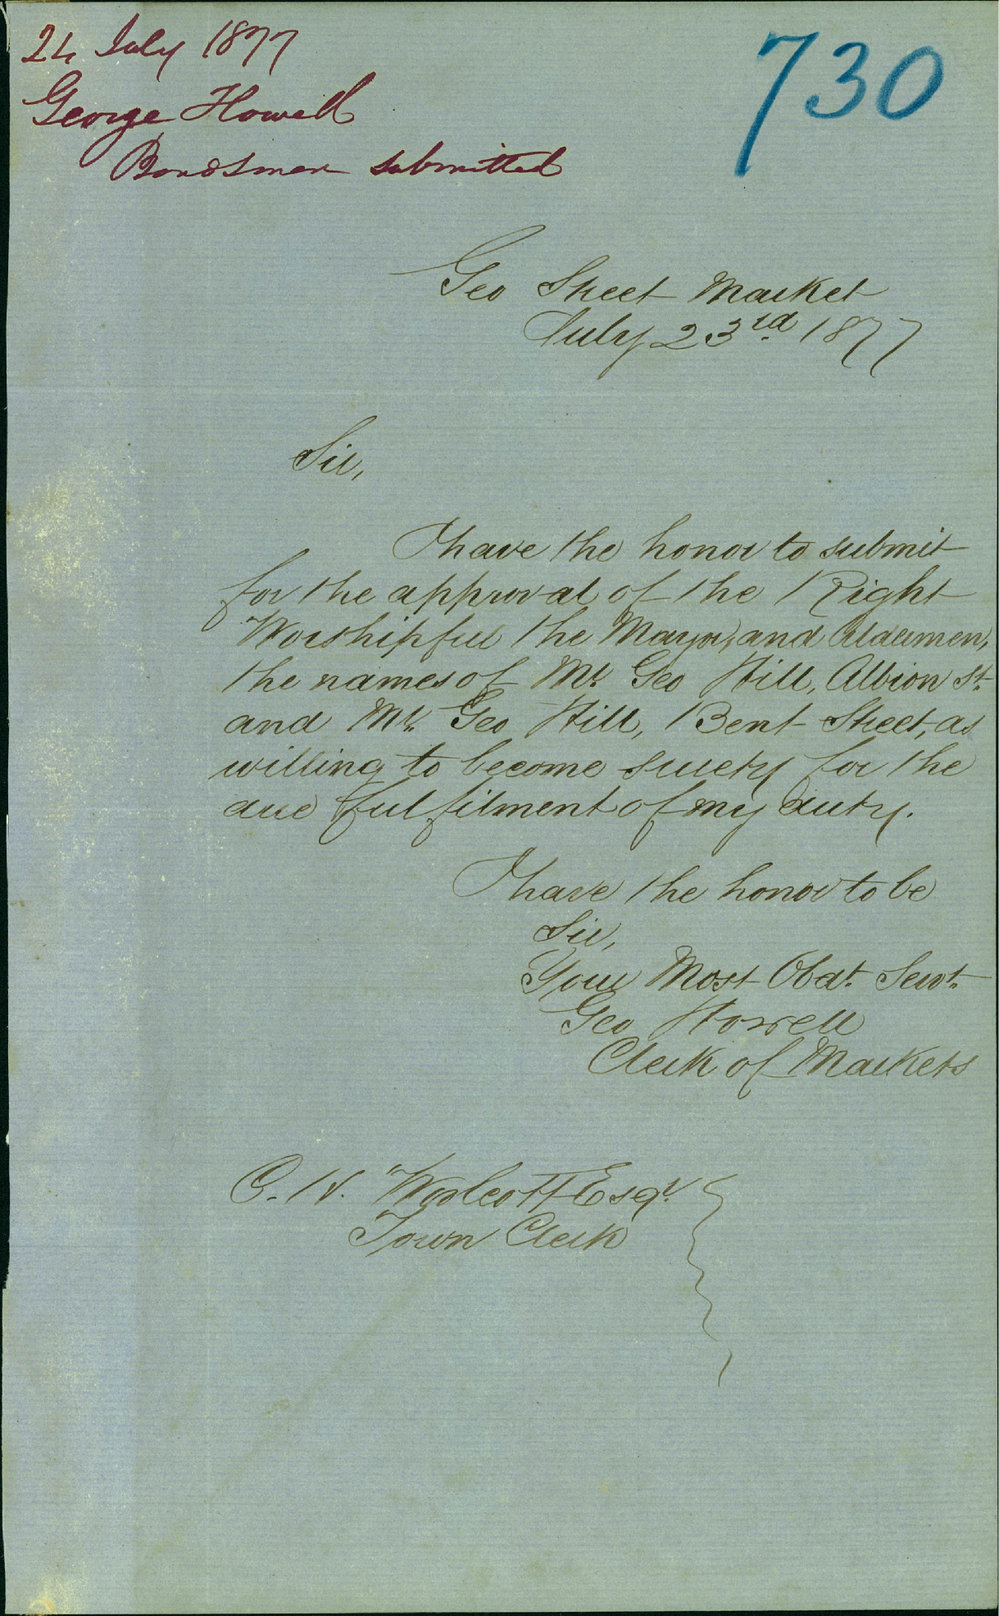 24 July 1877
730
George Howell
Bondsmen submitted
Geo Street Market
July 23rd. 1877
Sir,
I have the honor to submit
for the approval of the Right
Worshipful the Mayor, and Aldermen,
the names of Mr. Geo Hill, Albion St.
and Mr. Geo Hill, Bent Street, as
willing to become surety for the
due fulfilment of my duty.
I have the honor to be
Sir,
Your Most Obdt. Servt.
Geo Howell
Clerk of Markets
C. H. Woolcott Esqr.
Town Clerk